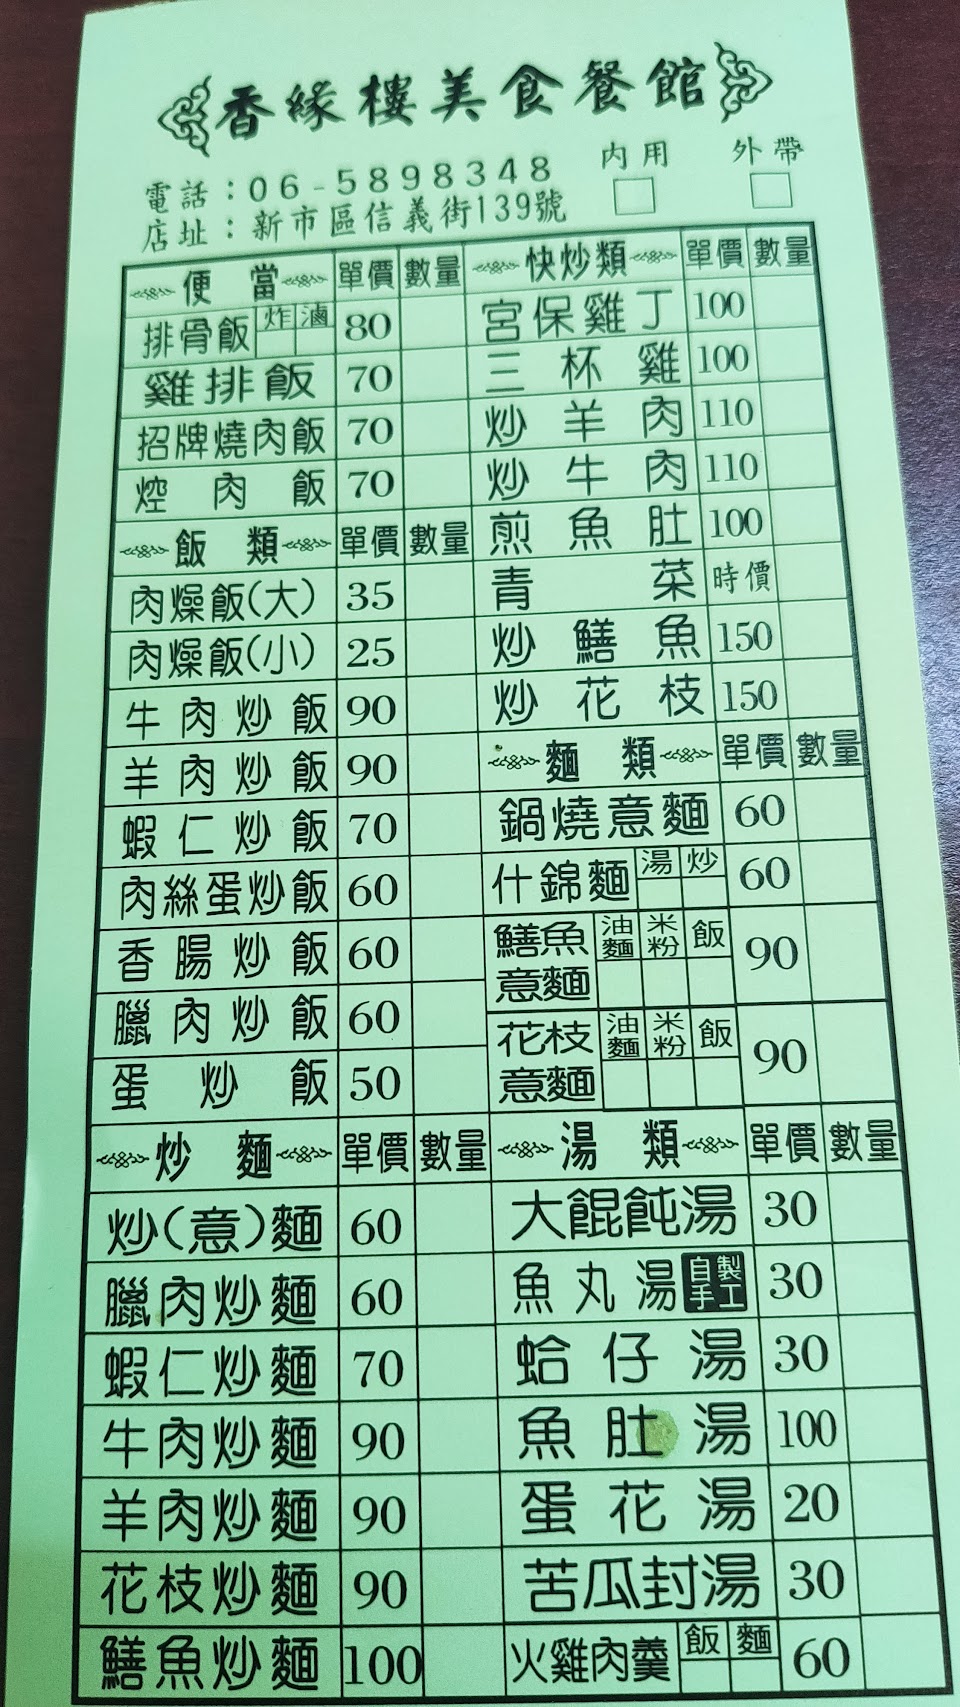 香緣樓美食餐館
電話：06-5898348
店址：新市區信義街139號
內用 外帶
便當 單價 數量
排骨飯 炸 滷 80
雞排飯 70
招牌燒肉飯 70
焢肉飯 70
飯類 單價 數量
肉燥飯(大) 35
肉燥飯(小) 25
牛肉炒飯 90
羊肉炒飯 90
蝦仁炒飯 70
肉絲蛋炒飯 60
香腸炒飯 60
臘肉炒飯 60
蛋炒飯 50
炒麵 單價 數量
炒(意)麵 60
臘肉炒麵 60
蝦仁炒麵 70
牛肉炒麵 90
羊肉炒麵 90
花枝炒麵 90
鱔魚炒麵 100
快炒類 單價 數量
宮保雞丁 100
三杯雞 100
炒羊肉 110
炒牛肉 110
煎魚肚 100
青菜 時價
炒鱔魚 150
炒花枝 150
麵類 單價 數量
鍋燒意麵 60
什錦麵 湯 炒 60
鱔魚意麵 油麵 米粉 飯 90
花枝意麵 油麵 米粉 飯 90
湯類 單價 數量
大餛飩湯 30
魚丸湯 自製手工 30
蛤仔湯 30
魚肚湯 100
蛋花湯 20
苦瓜封湯 30
火雞肉羹 飯 麵 60